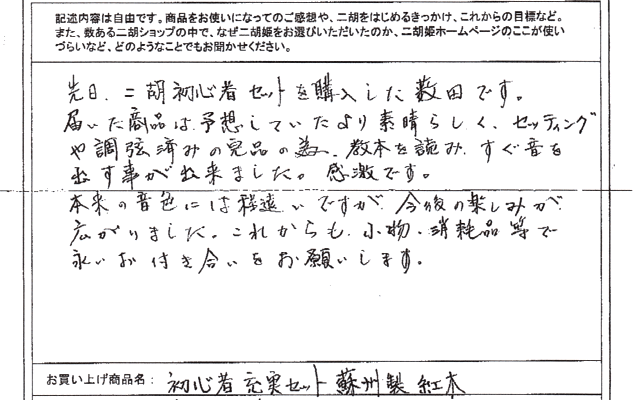 記述内容は自由です。商品をお使いになってのご感想や、二胡をはじめるきっかけ、これからの目標など。
また、数ある二胡ショップの中で、なぜ二胡姫をお選びいただいたのか、二胡姫ホームページのここが使い
づらいなど、どのようなことでもお聞かせください。
先日、二胡初心者セットを購入した薮田です。
届いた商品は予想していたより素晴らしく、セッティング
や調弦済みの完品の為、教本を読み、すぐ音を
出す事が出来ました。感激です。
本来の音色には程遠いですが、今後の楽しみが
広がりました。これからも、小物、消耗品等で
永いお付き合いをお願いします。
お買い上げ商品名: 初心者充実セット 蘇州製 紅木